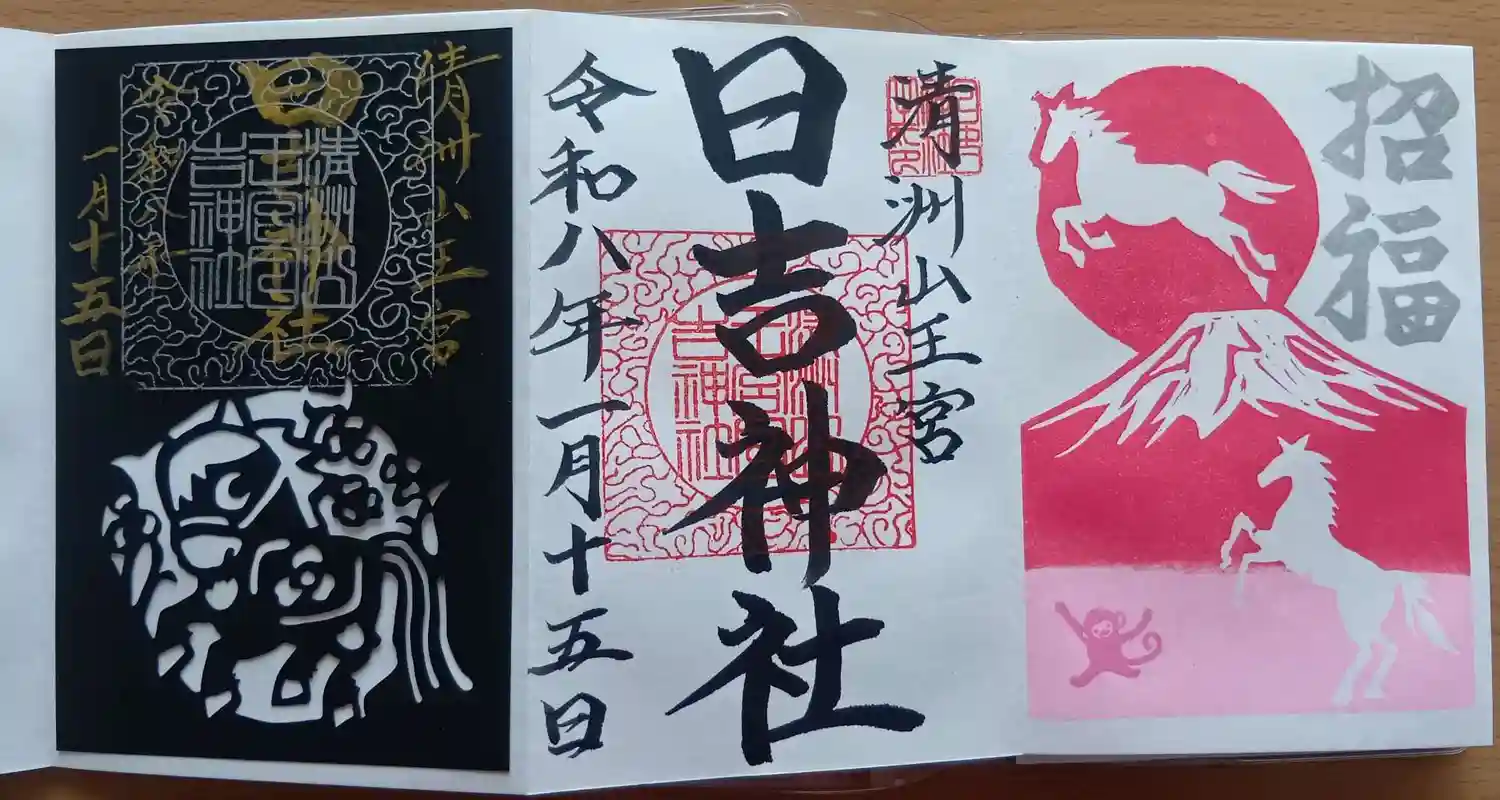 招福
清洲山王宮
日吉神社
令和八年一月十五日
清洲山王宮
日吉神社
清洲山王宮
日吉神社
令和八年
一月十五日
清洲山
王宮日
吉神社